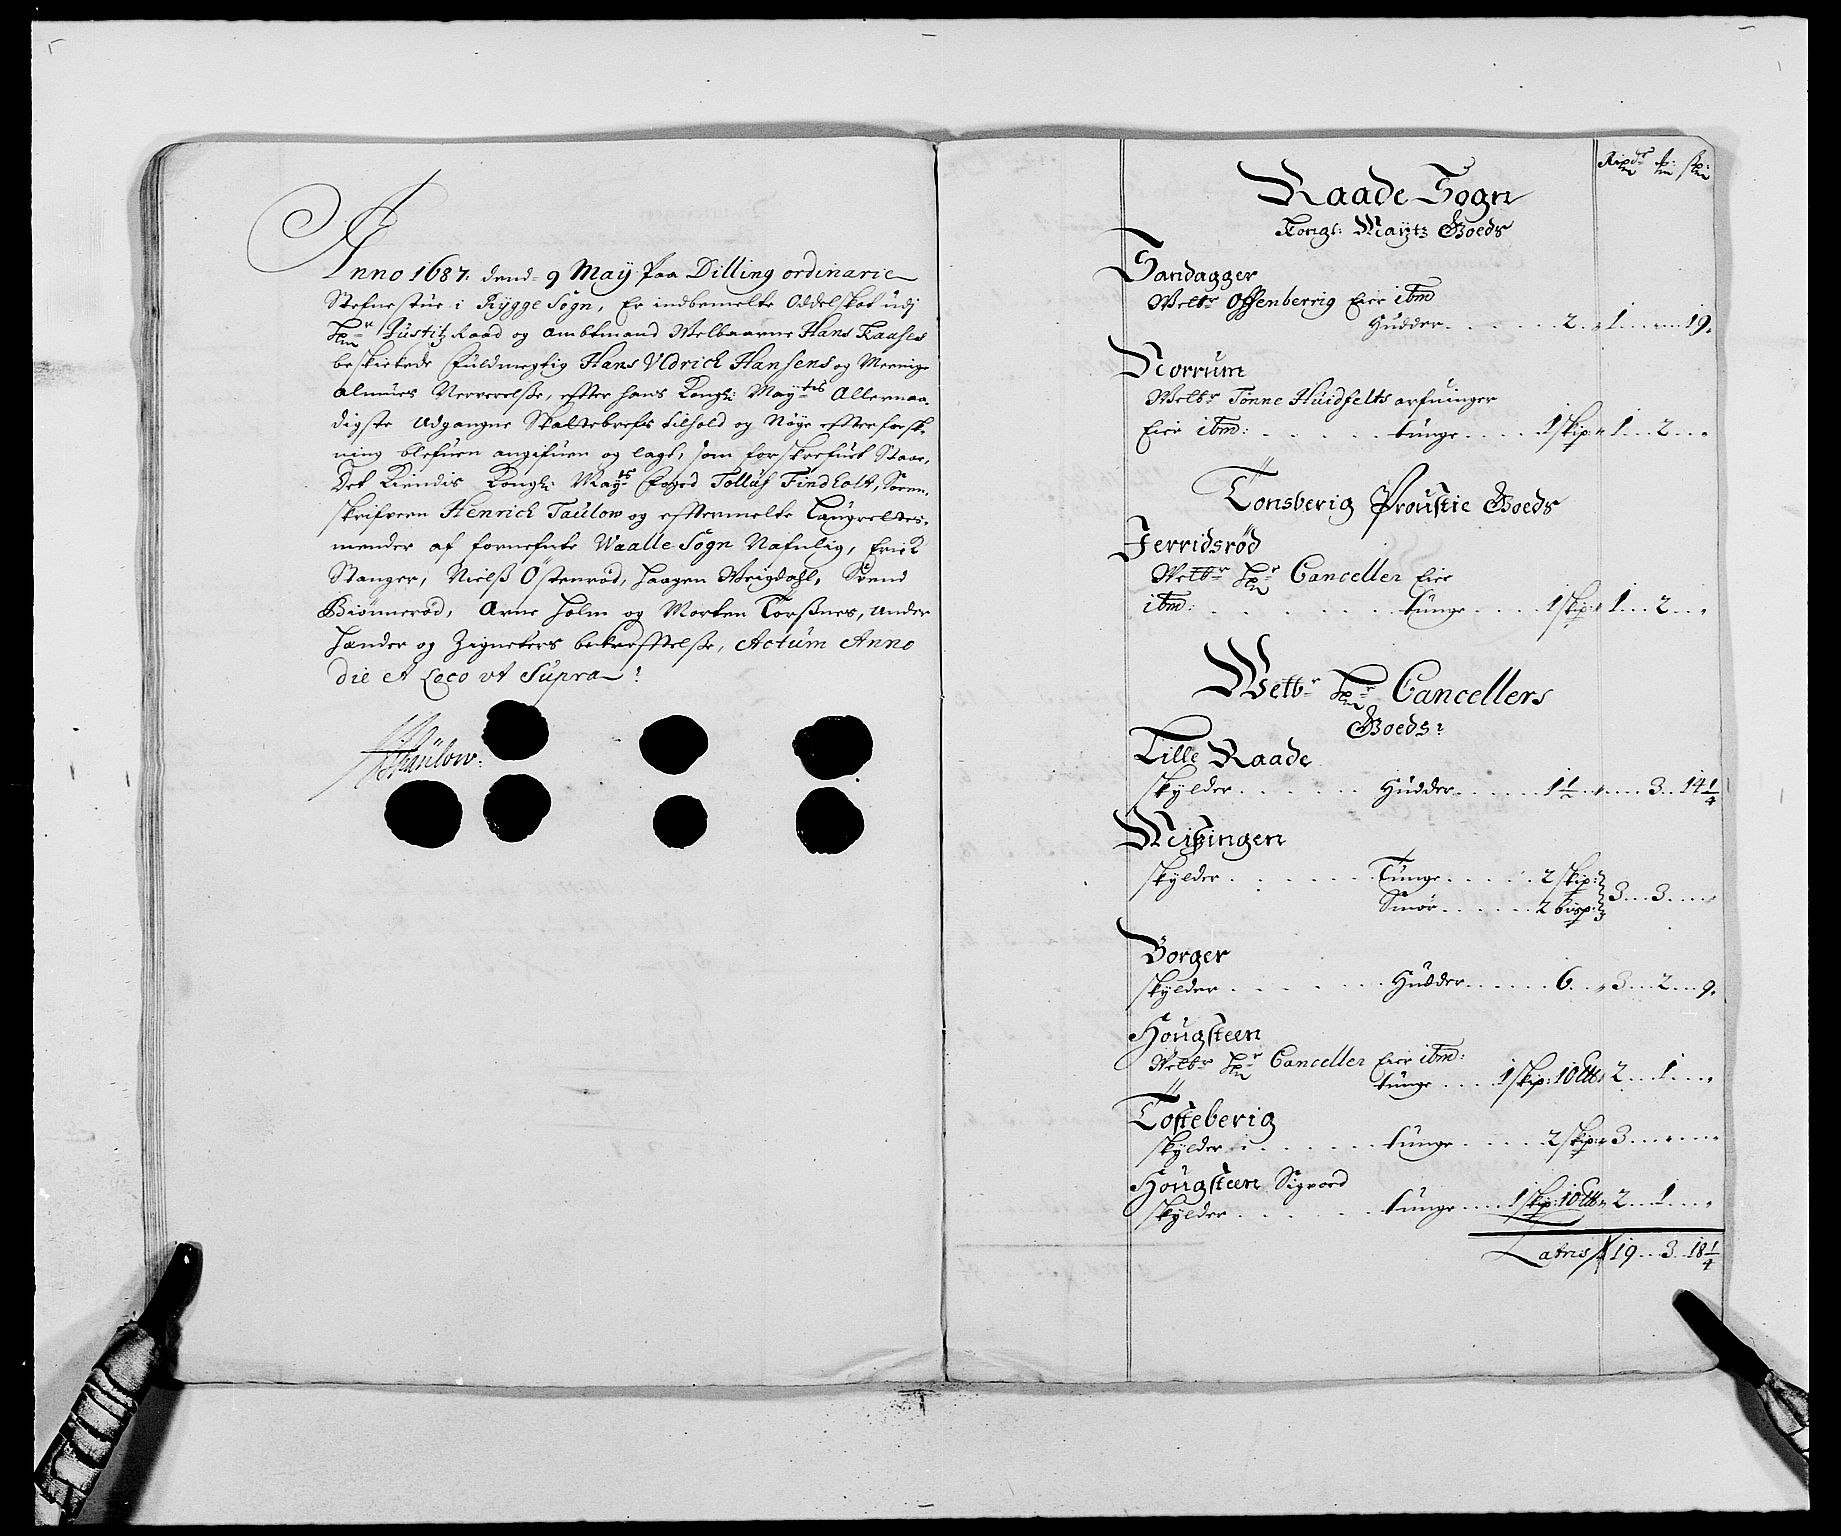 Anno 1687. dend 9 May paa Dilling ordinarie
Stefnestue i Rygge Sogn, Er indbemelte Oddelskat udj
Hr Justitz Raad og ambtmand Welbaarne Hans Kaases
beskickede fuldmegtig Hans Uldrich Hansens og Meenige
almues Nerverelsße, efter hans Kongl: Maytts Allernaa-
digste Udgangne Skattebrefs tilhold og Nøye efterforsk-
ning blefuen angifuen og lagt, som forskrefuet Staar,
Det Kiendis Kongl: Mayts foged Tolluf Findholt, Soren-
skrifveren Henrich Taulow og efttermelte Laugrettes-
mender af fornefnte Waalle Sogn Nafnlig, Erick
Stanger, Nielß Østenrød, Haagen Weigdahl, Svend
Biønnerød, Arne Holm og Morten Torßnes, under
Hænder og Zigneters bekrefttelße, Actum Anno
die et Loco ut Supra:
HTaulow:
Ripdr ß: skl:
Raade Sogn
Kongl: Maytz Goeds
Sandagger
Welbr Offenberrig Eier ibm
Hudder 2 1 19
Norrum
Welbr Tønne Huidfelts arfuinger
Eier ibm: tunge 1 skip: 1 2
Tonsberig Proustie Goeds
Jerridsrød
Welbr Hr Canceller Eier
ibm: tunge 1 skip: 1 2
Welbr Hr Cancellers
Goeds:
Lille Raade
skylder Hudder 1½ 3 14¼
Meitzingen
skylder Tunge 2 skip:
Smør 2 bisp: 3 3
Borger
skylder Hudder 6 3 2 9
Hougsteen
Welbr Hr Canceller Eier ibm:
tunge 1 skip: 10 Ltt 2 1
Tosteberig
skylder tunge 2 skip: 3
Hougsteen Sigvord
skylder tunge 1 skip: 10 Ltt 2 1
Latris 19 3 18¼